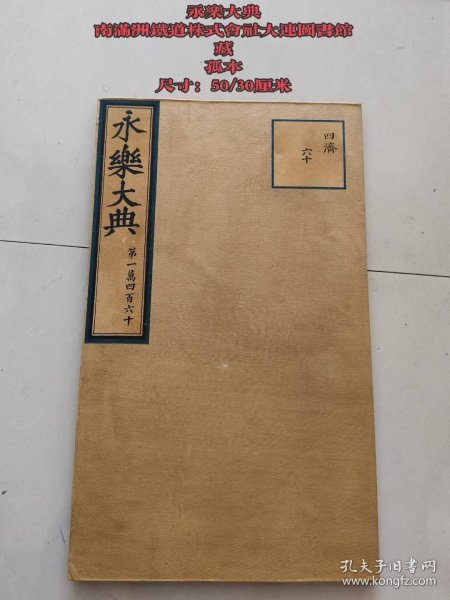 永樂大典
南滿洲鐵道株式會社大連圖書館
藏
孤本
尺寸：50/30厘米
永樂大典
第一萬四百六十
四濟
六十
孔夫子旧书网
www.kongfz.com